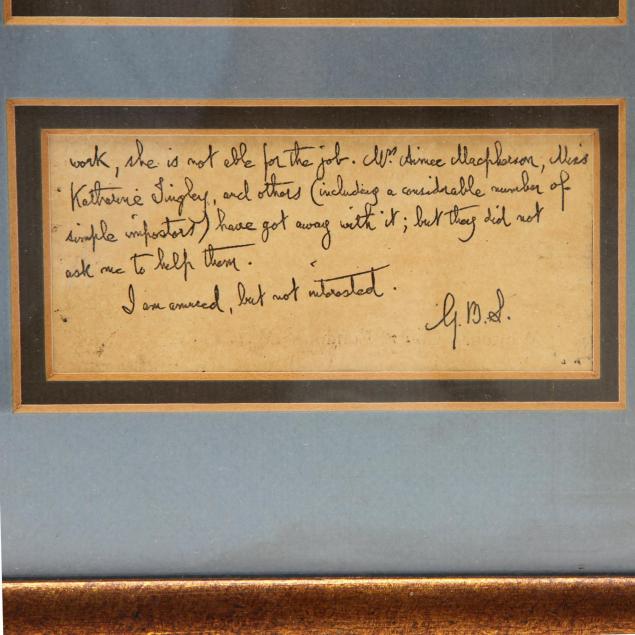 work, she is not able for the job. Mrs Aimee Macpherson, Miss
Katherine Tingley, and others (including a considerable number of
simple impostors) have got away with it; but they did not
ask me to help them.
I am amused, but not interested.
G.B.S.